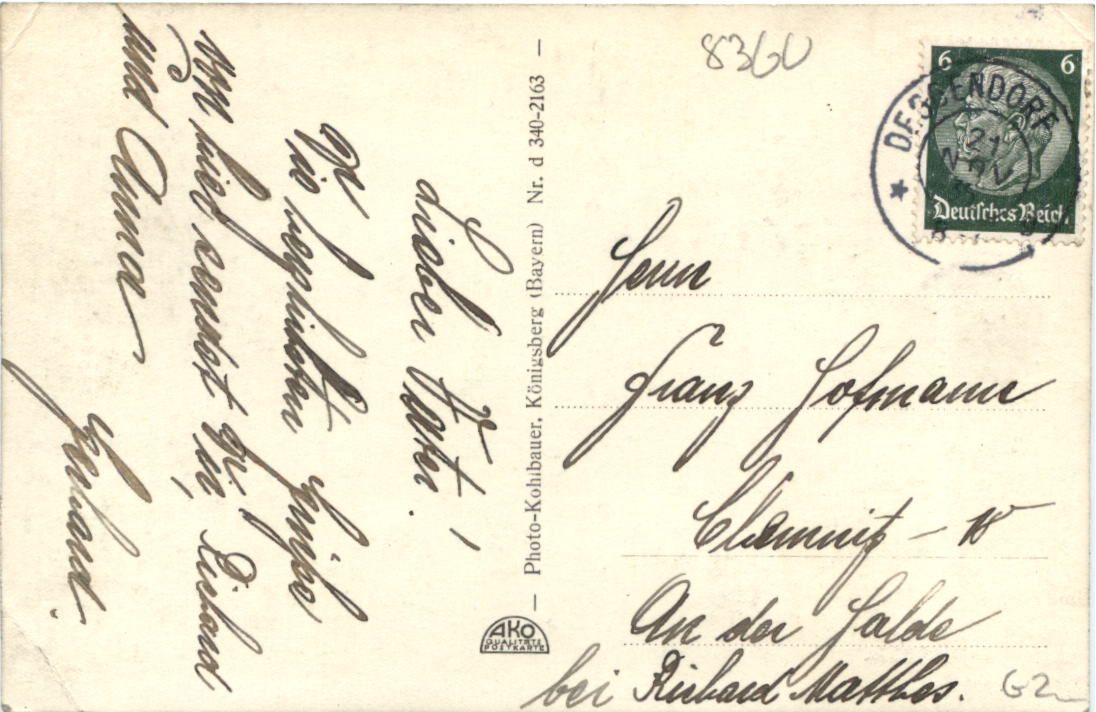 8360
6 6
Deutsches Reich
DEGGENDORF
21
NOV
Herrn
Franz Hofmann
Chemnitz - W
An der Halde
bei Richard Matthes.
G2
Photo-Kohlbauer, Königsberg (Bayern) Nr. d 340-2163
AKO
QUALITÄTS
POSTKARTE
Lieber Vater!
Grüße
von hier sendet Richard
und Anna